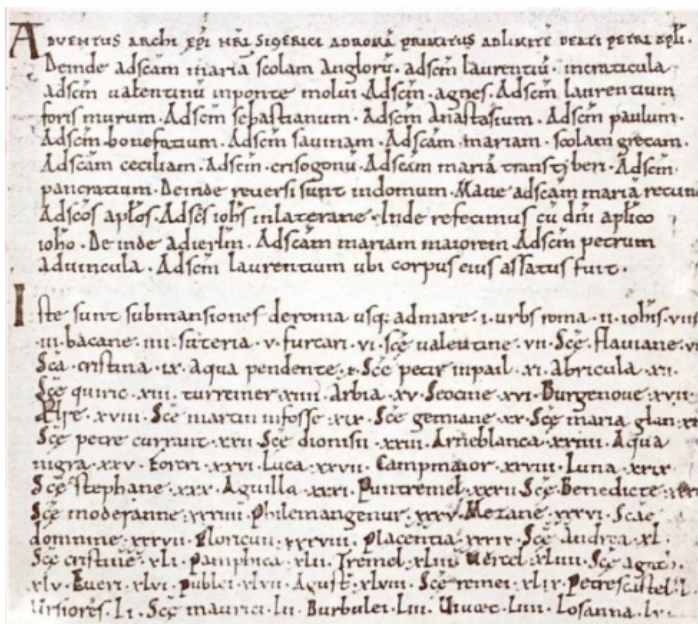 ADVENTUS ARCHI EPI NRI SIGERICI AD ROMA PRIMITUS AD LIMITE BEATI PETRI APLI.
Deinde adscam maria scolam angloru. adscm laurentiu. incraticula
adscm ualentinu inponte molui. Adscm. agnes. Adscm laurentium
foris murum. Adscm sebastianum. Adscm Anastasium. Adscm paulum.
Adscm bonefatium. Adscm sauinam. Adscam mariam. scolam grecam.
Adscam ceciliam. Adscm. crisogonu. Adscam maria transtyberi. Adscm
pancratium. Deinde reuersi sunt indomum. Mane adscam maria
Adscos aplos. Adscs iohs inlaterane. Inde refecimus cu dni aplico
ioho. Deinde adierlm. Adscam mariam maiorem. Adscm petrum
aduincula. Adscm laurentium ubi corpus eius assatus fuit.
Iste sunt submansiones deroma usq; admare. i. urbs roma. ii. iohis. viiii
iii. bacane. iiii. suteria. v. furcari. vi. sce ualentine. vii. Sce. flauiane.
Sca. cristina. ix. Aqua pendente. x. Sce petir inpail. xi. Abricula. xii.
Sce quiric. xiii. turreiner. xiiii. Arbia. xv. Seocine. xvi. Burgenoue. xvii.
Ælse. xviii. Sce martin infosse. xix. Sce gemiane. xx. Sce maria glan.
Sce petre currant. xxii. Sce dionisii. xxiii. Arneblanca. xxiiii. Aqua
nigra. xxv. forcri. xxvi. Luca. xxvii. Campmaior. xxviii. Luna. xxix.
Sce stephane. xxx. Aguilla. xxxi. Puntremel. xxxii. Sce Benedicte.
Sce moderanne. xxxiiii. Philemangenur. xxxv. Mezane. xxxvi. Scae
domnine. xxxvii. floricun. xxxviii. Placentia. xxxix. Sce Andrea. xl.
Sce cristine. xli. Pamphica. xlii. Tremel. xliii. Uercel. xliiii. Sce agath.
xlv. Eueri. xlvi. Publei. xlvii. Agust. xlviii. Sce remei. xlix. Petrescastel. l.
Ursiores. li. Sce maurici. lii. Burbulei. liii. Uiuaec. liiii. Losanna. lv.